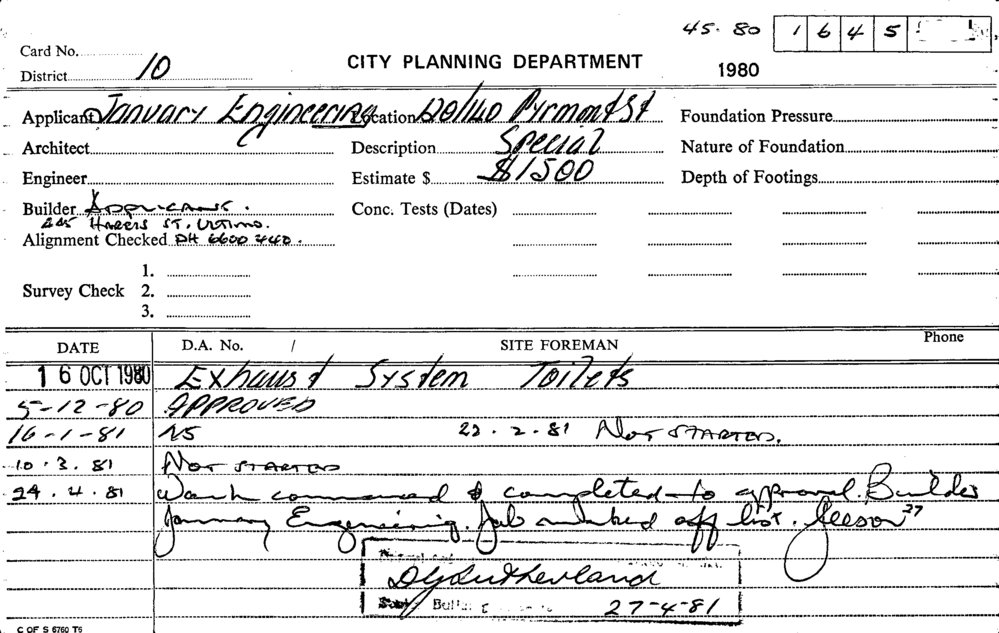 45. 80 1 6 4 5
Card No.
District 10
CITY PLANNING DEPARTMENT
1980
Applicant January Engineering Location 120/140 Pyrmont St Foundation Pressure
Architect Description Special Nature of Foundation
Engineer Estimate $ $1500 Depth of Footings
Builder Applicant. Conc. Tests (Dates)
445 Harris St. Ultimo.
Alignment Checked PH 6600 440.
Survey Check
1.
2.
3.
DATE D.A. No. / SITE FOREMAN Phone
16 OCT 1980 Exhaust System Toilets
5-12-80 APPROVED
16-1-81 NS 22. 2. 81 Not STARTED.
10. 3. 81 Not STARTED
24. 4. 81 Work commenced & completed to approval. Builder
January Engineering. Job marked off list. 37
D G Sutherland
27-4-81
C OF S 6760 T5